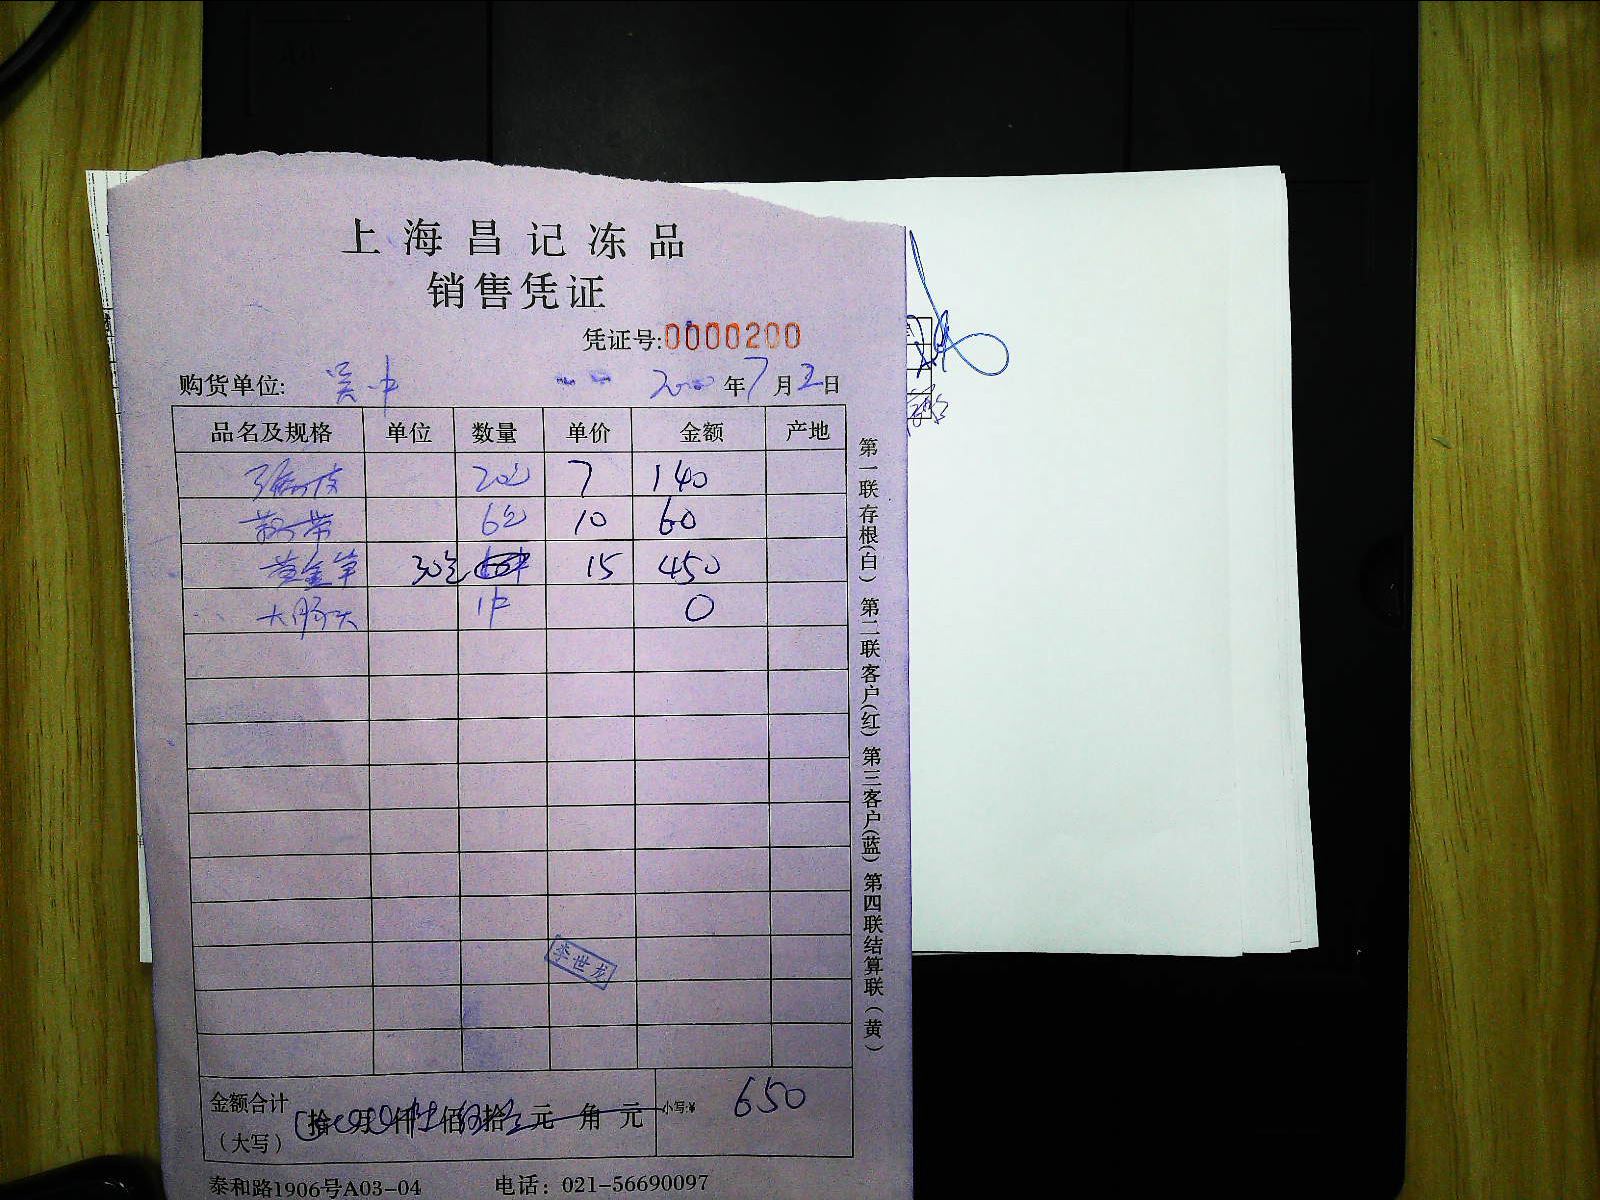 上海昌记冻品
销售凭证
凭证号:0000200
购货单位: 吴中 年7月2日
品名及规格 单位 数量 单价 金额 产地
20包 7 140
6包 10 60
黄金笋 30包 15 450
大肠头 1件 0
第一联存根(白) 第二联客户(红) 第三客户(蓝) 第四联结算联(黄)
李世龙
金额合计
(大写) 拾 万 仟 佰 拾 元 角 元 小写:¥ 650
泰和路1906号A03-04 电话: 021-56690097